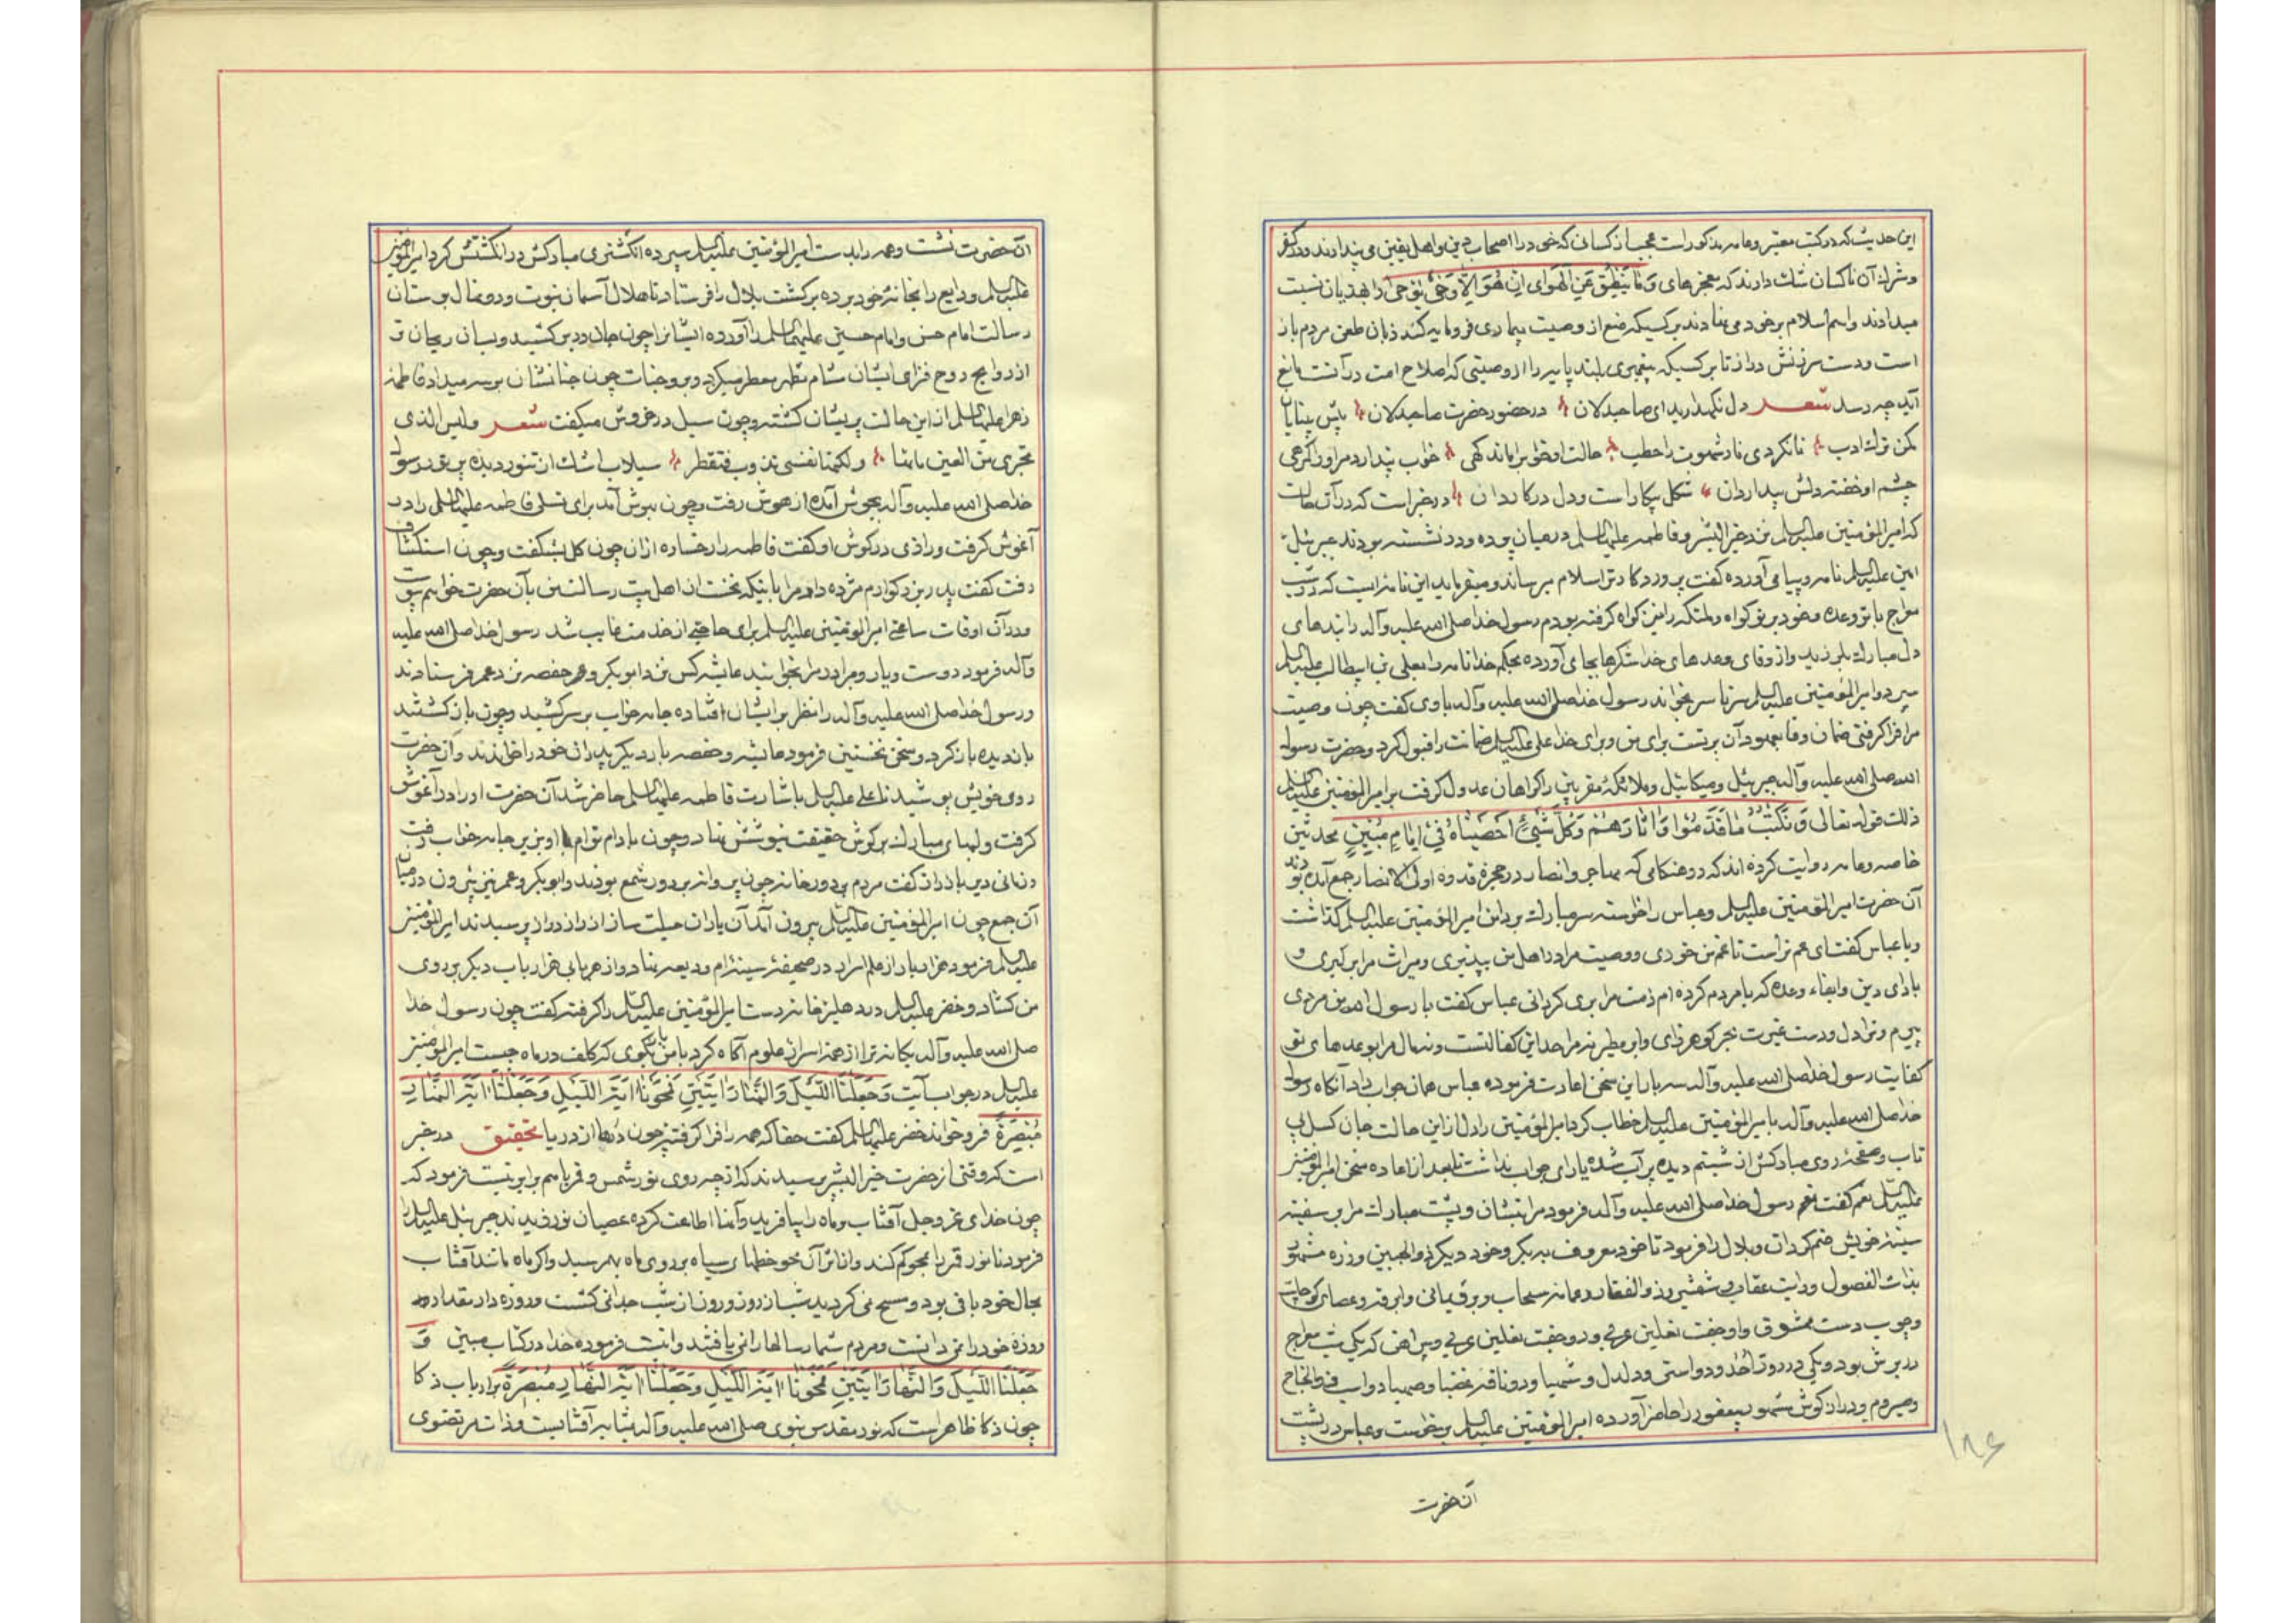 این حدیث که در کتب معتبر وعامه مذکور است عجب از کسانی که خود را اصحاب دین واهل یقین می پندارند ودر کفر
وشرک آن ناکسان شک دارند که معجزهای وَمَا یَنْطِقُ عَنِ الْهَوَی اِنْ هُوَ اِلَّا وَحْیٌ یُوحَی را بهذیان نسبت
میدادند واسم اسلام بر خود می نهادند بر کسیکه منع از وصیت بیماری فرومایه کند زبان طعن مردم باز
است ودست سرزنش دراز تا بر کسیکه پیغمبری بلند پایه را از وصیتی که صلاح امت در آنست مانع
آید چه رسد شعر دل نگهدارید ای صاحبدلان در حضور حضرت صاحبدلان پیش بینایان
مکن ترک ادب تا نکردی نار شهوت را حطب حالت او خواب را ماند کهی خواب پندارد مر او را کمرهی
چشم او خفته دلش بیدار دان شکل بیکار است ودل در کار دان در خبر است که در آن حالت
که امیرالمؤمنین علیه السلم نزد خیر البشر وفاطمه علیها السلم در میان پرده ودر نشسته بودند جبرئیل
امین علیه السلم نامه وپیامی آورده گفت پروردگارتن اسلام میرساند ومیفرماید این نامه ایست که در شب
معراج با تو وعده وخود بر تو گواه وملئکه را نیز گواه گرفته بودم رسول خدا صلی الله علیه وآله را بندهای
دل مبارک بلرزید واز وفای وعدهای خدا شکرها بجای آورده بحکم خدا نامه را بعلی بن ابیطالب علیه السلم
سپرد وامیرالمؤمنین علیه السلم سر تا سر بخواند رسول خدا صلی الله علیه وآله باوی گفت چون وصیت
مرا فرا کرفتی ضمان وفا بعهود آن بر تست برای من وبرای خدا علی علیه السلم ضمانت را قبول کرد وحضرت رسول
الله صلی الله علیه وآله جبرئیل ومیکائیل وملائکهٔ مقربین را گواهان عدول گرفت بر امیرالمؤمنین علیه السلم
ذلک قوله تعالی وَنَکْتُبُ مَا قَدَّمُوا وَاٰثَارَهُمْ وَکُلَّ شَیْءٍ اَحْصَیْنَاهُ فِی اِمَامٍ مُبِینٍ محدثین
خاصه وعامه روایت کرده اند که در هنگامی که مهاجر وانصار در حجرهٔ قدوه اولی الابصار جمع آمده بودند
آن حضرت امیرالمؤمنین علیه السلم وعباس را خواسته سر مبارک بر دامن امیرالمؤمنین علیه السلم گذاشت
وبا عباس گفت ای عم تراست تا غم من خوری ووصیت مرا در اهل من بپذیری ومیراث مرا بر گیری و
بادای دین وایفاء وعده که با مردم کرده ام ذمت مرا بری گردانی عباس گفت یا رسول الله من مردی
پیرم وترا دل ودست غیرت بحر گوهر زای وابر مطیر نه مرا حد این کفالتست ونه مال مرا بوعدهای تو
کفایت رسول خدا صلی الله علیه وآله سه بار این سخن اعادت فرموده عباس همان جواب داد آنگاه رسول
خدا صلی الله علیه وآله با امیرالمؤمنین علیه السلم خطاب کرد امیرالمؤمنین را دل از این حالت جان کسل بی
تاب وصفحهٔ روی مبارکش از شبنم دیده پر آب شده یارای جواب نداشت تا بعد از اعاده سخن امیرالمؤمنین
علیه السلم نعم گفت رسول خدا صلی الله علیه وآله فرمود مرا بنشان وپشت مبارک مرا بر سفینه
سینه خویش ضم کردان وبلال را فرمود تا خود معروف به بکر وخود دیگر ذو الجبین وزره مشهور
بذات الفصول ورایت عقاب وشمشیر ذو الفقار وعمامه سحاب وبرد یمانی وابرقه وعصای کوچک
وچوب دست ممشوق واو جفت نعلین عربی ودو جفت نعلین عربی وپیراهن که یکی شب معراج
در برش بود ویکی در روز احد ودو استر دلدل وشهبا ودو ناقه غضبا وصهبا ودو اسب ذو الجناح
وحیزوم ودراز گوش مشهور بیعفور را حاضر آورده امیرالمؤمنین علیه السلم بر خواست وعباس در پشت
آنحضرت
۱۸۶
آن حضرت نشست وهمه را بدست امیرالمؤمنین علیه السلم سپرده انگشتری مبارکش در انگشتش کرد امیرالمؤمنین
علیه السلم ودایع را بخانهٔ خود برده برگشت بلال را فرستاد تا هلال آسمان نبوت ودو نهال بوستان
رسالت امام حسن وامام حسین علیهما السلم را آورده ایشانرا چون جان در بر کشید وبسان ریحان تر
از روایح روح فزای ایشان مشام مطهر معطر میکرد وبر وجنات چون جنانشان بوسه میداد فاطمه
زهرا علیها السلم از این حالت پریشان گشته وچون سیل در خروش میگفت شعر ولیس الذی
تجری من العین ماؤها ولکنها نفسی تذوب فتقطر سیلاب اشک از تنور دیده پر نور رسول
خدا صلی الله علیه وآله بجوش آمده از هوش رفت وچون بهوش آمد برای تسلی فاطمه علیها السلم را در
آغوش کرفت ورازی در گوش او گفت فاطمه را رخساره از آن چون گل بشکفت وچون استکشاف
رفت گفت پدر بزرگوارم مژده داد مرا باینکه نخست از اهل بیت رسالت من بآن حضرت خواهم پیوست
ودر آن اوقات ساعتی امیرالمؤمنین علیه السلم برای حاجتی از خدمت غایب شد رسول خدا صلی الله علیه
وآله فرمود دوست ویار وبرادر مرا بخوانید عایشه کس نزد ابو بکر وعمر حفصه نزد عمر فرستادند
ورسول خدا صلی الله علیه وآله را نظر بر ایشان افتاده جامه خواب بر سر کشید وچون باز گشتند
باز دیده باز کرد وسخن نخستین فرمود عایشه وحفصه بار دیگر پدران خود را خواندند وآن حضرت
روی خویش پوشید تا علی علیه السلم باشارت فاطمه علیها السلم حاضر شد آن حضرت او را در آغوش
گرفت ولبهای مبارک بر گوش حقیقت نیوشش نهاد وچون بادام توام با او بزیر جامه خواب رفت
وزمانی دیر باز راز گفت مردم بر دور خانه چون پروانه بر دور شمع بودند وابو بکر وعمر نیز بیرون در میان
آن جمع چون امیرالمؤمنین علیه السلم بیرون آمد آن یاران حیلت ساز از راز دراز پرسیدند امیرالمؤمنین
علیه السلم فرمود هزار باب از علم اسرار در صحیفهٔ سینه ام ودیعه نهاد واز هر بابی هزار باب دیگر بر روی
من گشاد وخضر علیه السلم در دهلیز خانه دست امیرالمؤمنین علیه السلم را گرفته گفت چون رسول خدا
صلی الله علیه وآله یگانه ترا از همهٔ اسرار علوم آگاه کرد با من باز گوی که کلف در ماه چیست امیرالمؤمنین
علیه السلم در جواب آیت وَجَعَلْنَا اللَّیْلَ وَالنَّهَارَ اٰیَتَیْنِ فَمَحَوْنَا اٰیَةَ اللَّیْلِ وَجَعَلْنَا اٰیَةَ النَّهَارِ
مُبْصِرَةً فرو خواند خضر علیه السلم گفت حقا که همه را فرا گرفتی چون درها از دریا تحقیق در خبر
است که وقتی از حضرت خیر البشر پرسیدند که از چه روی نور شمس وقمر با هم برابر نیست فرمود که
چون خدای عز وجل آفتاب وماه را بیافرید وآنها اطاعت کرده عصیان نورزیدند جبرئیل علیه السلم را
فرمود تا نور قمر را محو کم کند واز اثر آن محو خطهای سیاه بر روی ماه بهم رسید واگر ماه مانند آفتاب
بحال خود باقی بود ومسح نمی گردید شبانه روز وروز از شب جدائی نگشت وروزه دار مقدار
روزهٔ خود را نمی دانست ومردم شمار سالها را نمی یافتند واینست فرموده خدا در کتاب مبین وَ
جَعَلْنَا اللَّیْلَ وَالنَّهَارَ اٰیَتَیْنِ فَمَحَوْنَا اٰیَةَ اللَّیْلِ وَجَعَلْنَا اٰیَةَ النَّهَارِ مُبْصِرَةً بر ارباب ذکا
چون ذکا ظاهر است که نور مقدس نبوی صلی الله علیه وآله بمثابه آفتابیست وذات مرتضوی